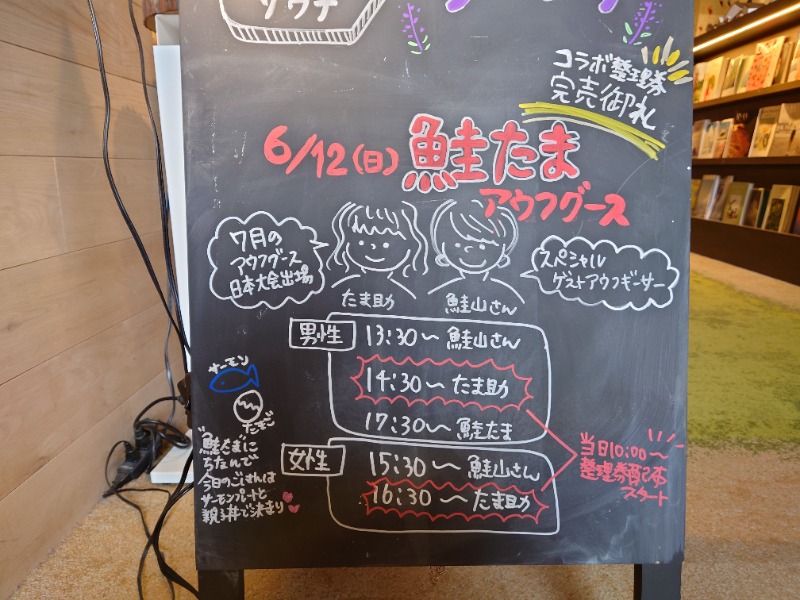 サウナ
コラボ整理券
完売御礼
6/12(日) 鮭たま
アウフグース
7月の
アウフグース
日本大会出場
スペシャル
ゲストアウフギーサー
たま助
鮭山さん
男性 13:30〜 鮭山さん
14:30〜 たま助
17:30〜 鮭たま
女性 15:30〜 鮭山さん
16:30〜 たま助
当日10:00〜
整理券配布
スタート
サーモン
たまご
"鮭たま"に
ちなんで
今日のごはんは
サーモンハートと
親子丼で決まり